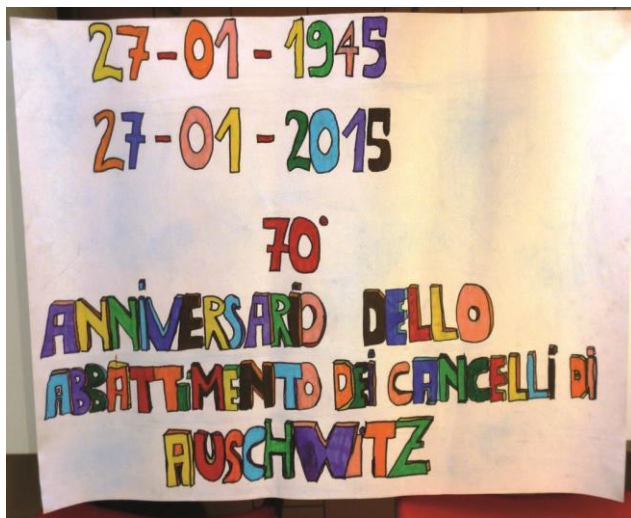 27-01-1945
27-01-2015
70°
ANNIVERSARIO DELLO
ABBATTIMENTO DEI CANCELLI DI
AUSCHWITZ